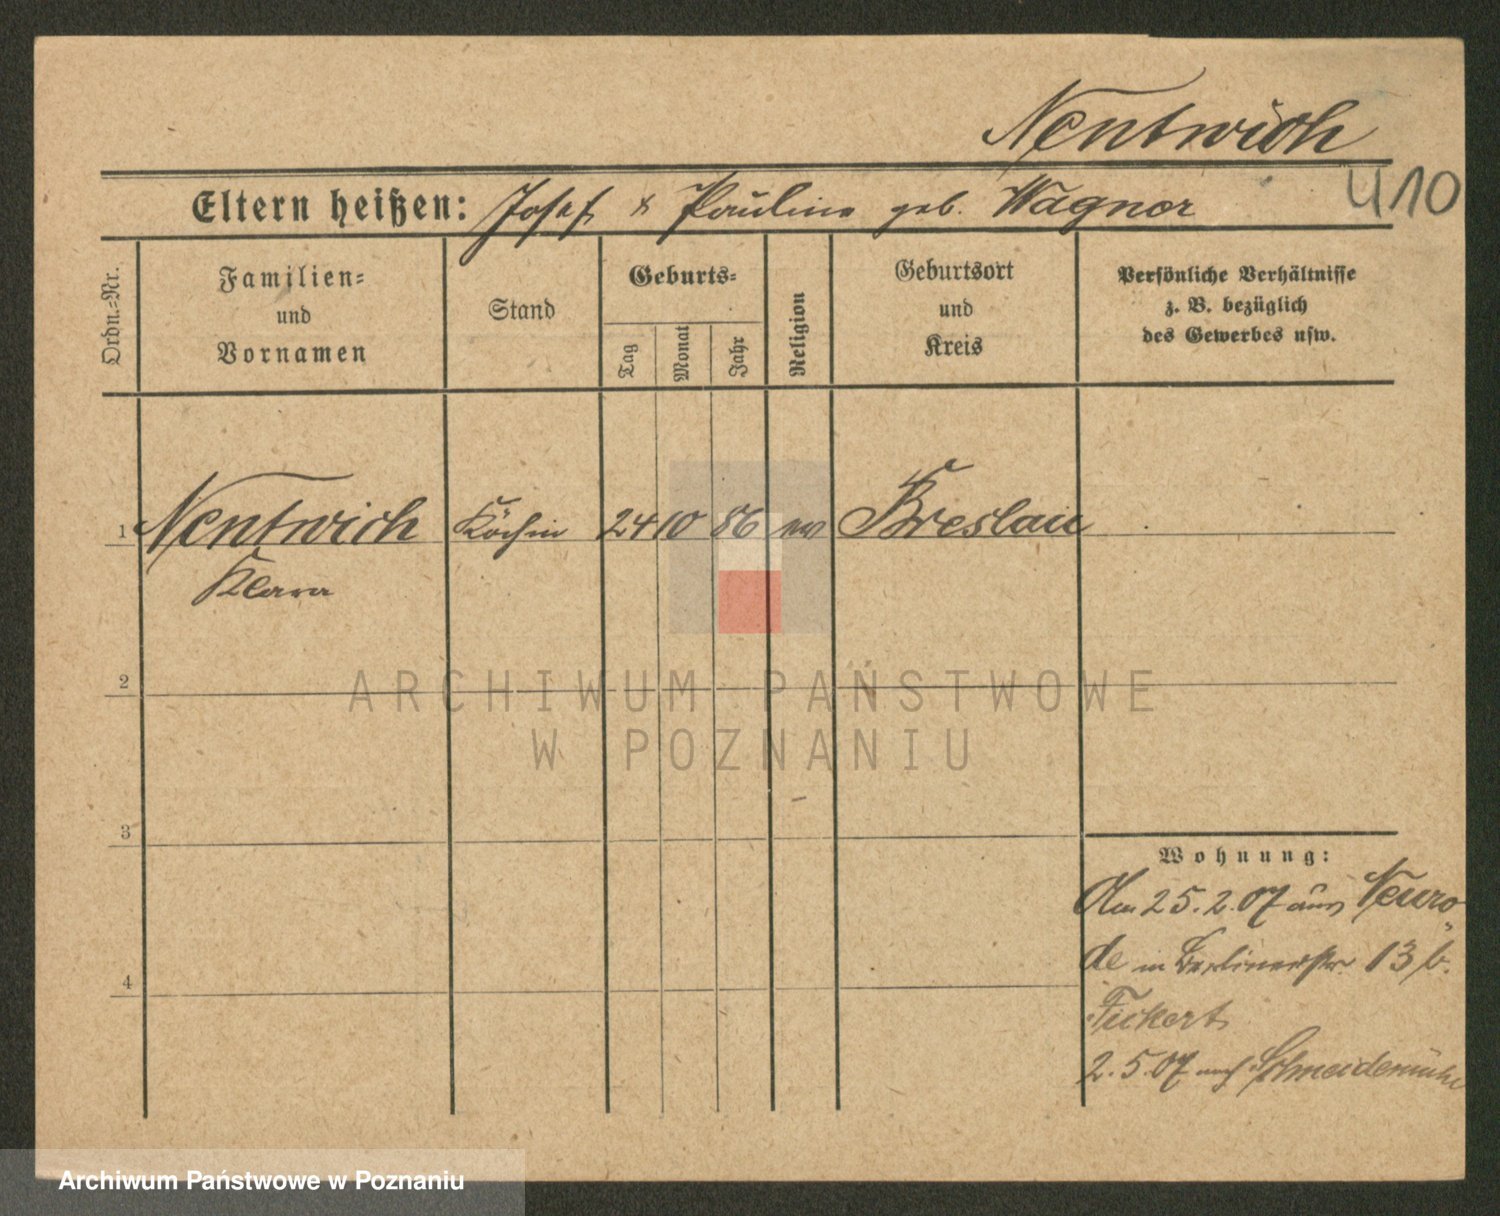 Nentwich
Eltern heißen: Josef & Pauline geb. Wagner
410
Ordn.-Nr.
Familien-
und
Vornamen
Stand
Geburts-
Tag
Monat
Jahr
Religion
Geburtsort
und
Kreis
Persönliche Verhältnisse
z. B. bezüglich
des Gewerbes usw.
1 Nentwich Köchin 24 10 86 ev Breslau
Klara
2
ARCHIWUM PAŃSTWOWE
W POZNANIU
3
Wohnung:
Am 25.2.07 aus Neuro-
de in Berlinerstr. 13 b.
Fickert
4
2.5.07 nach Schneidemühl
Archiwum Państwowe w Poznaniu